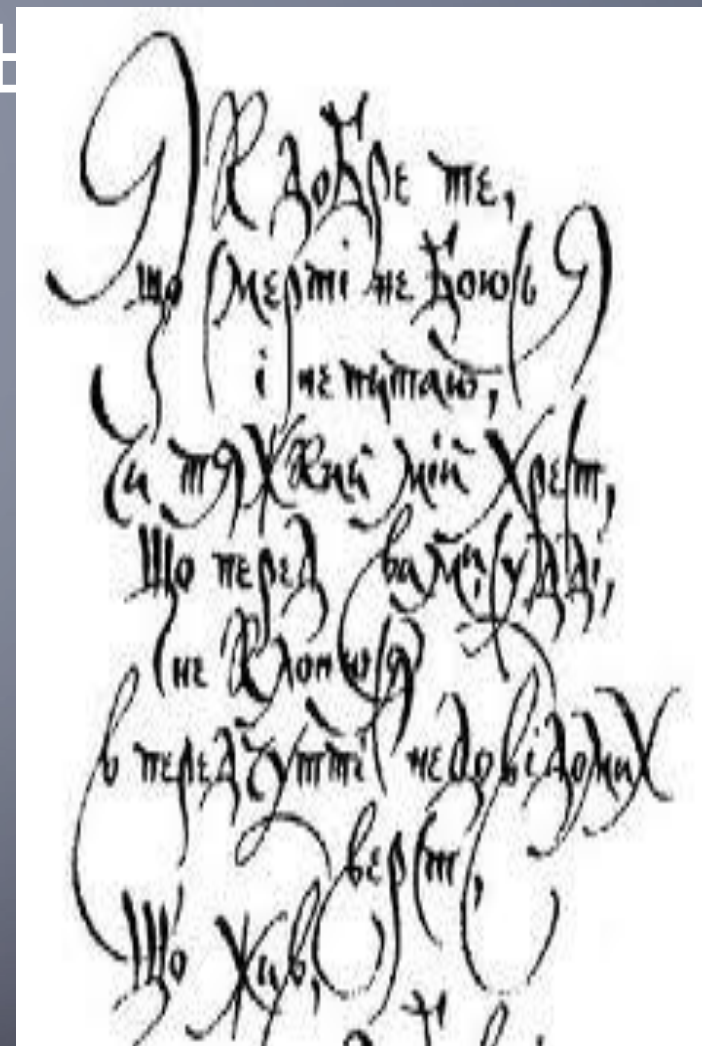 Як добре те,
що смерті не боюсь я
і не питаю,
Чи тяжкий мій хрест,
Що перед вами, судді,
не клонюся
в передчутті недовідомих
верст,
Що жив,